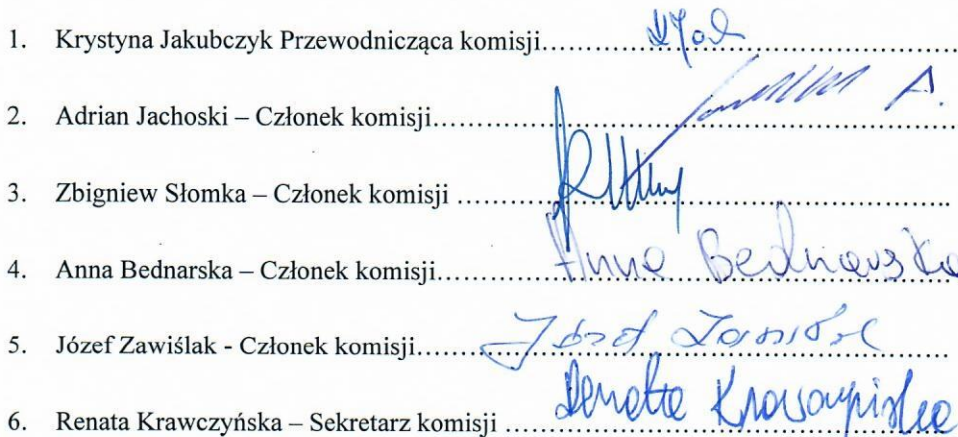 1. Krystyna Jakubczyk Przewodnicząca komisji
2. Adrian Jachoski – Członek komisji A.
3. Zbigniew Słomka – Członek komisji
4. Anna Bednarska – Członek komisji Anna Bednarska
5. Józef Zawiślak - Członek komisji Józef Zawiślak
6. Renata Krawczyńska – Sekretarz komisji Renata Krawczyńska